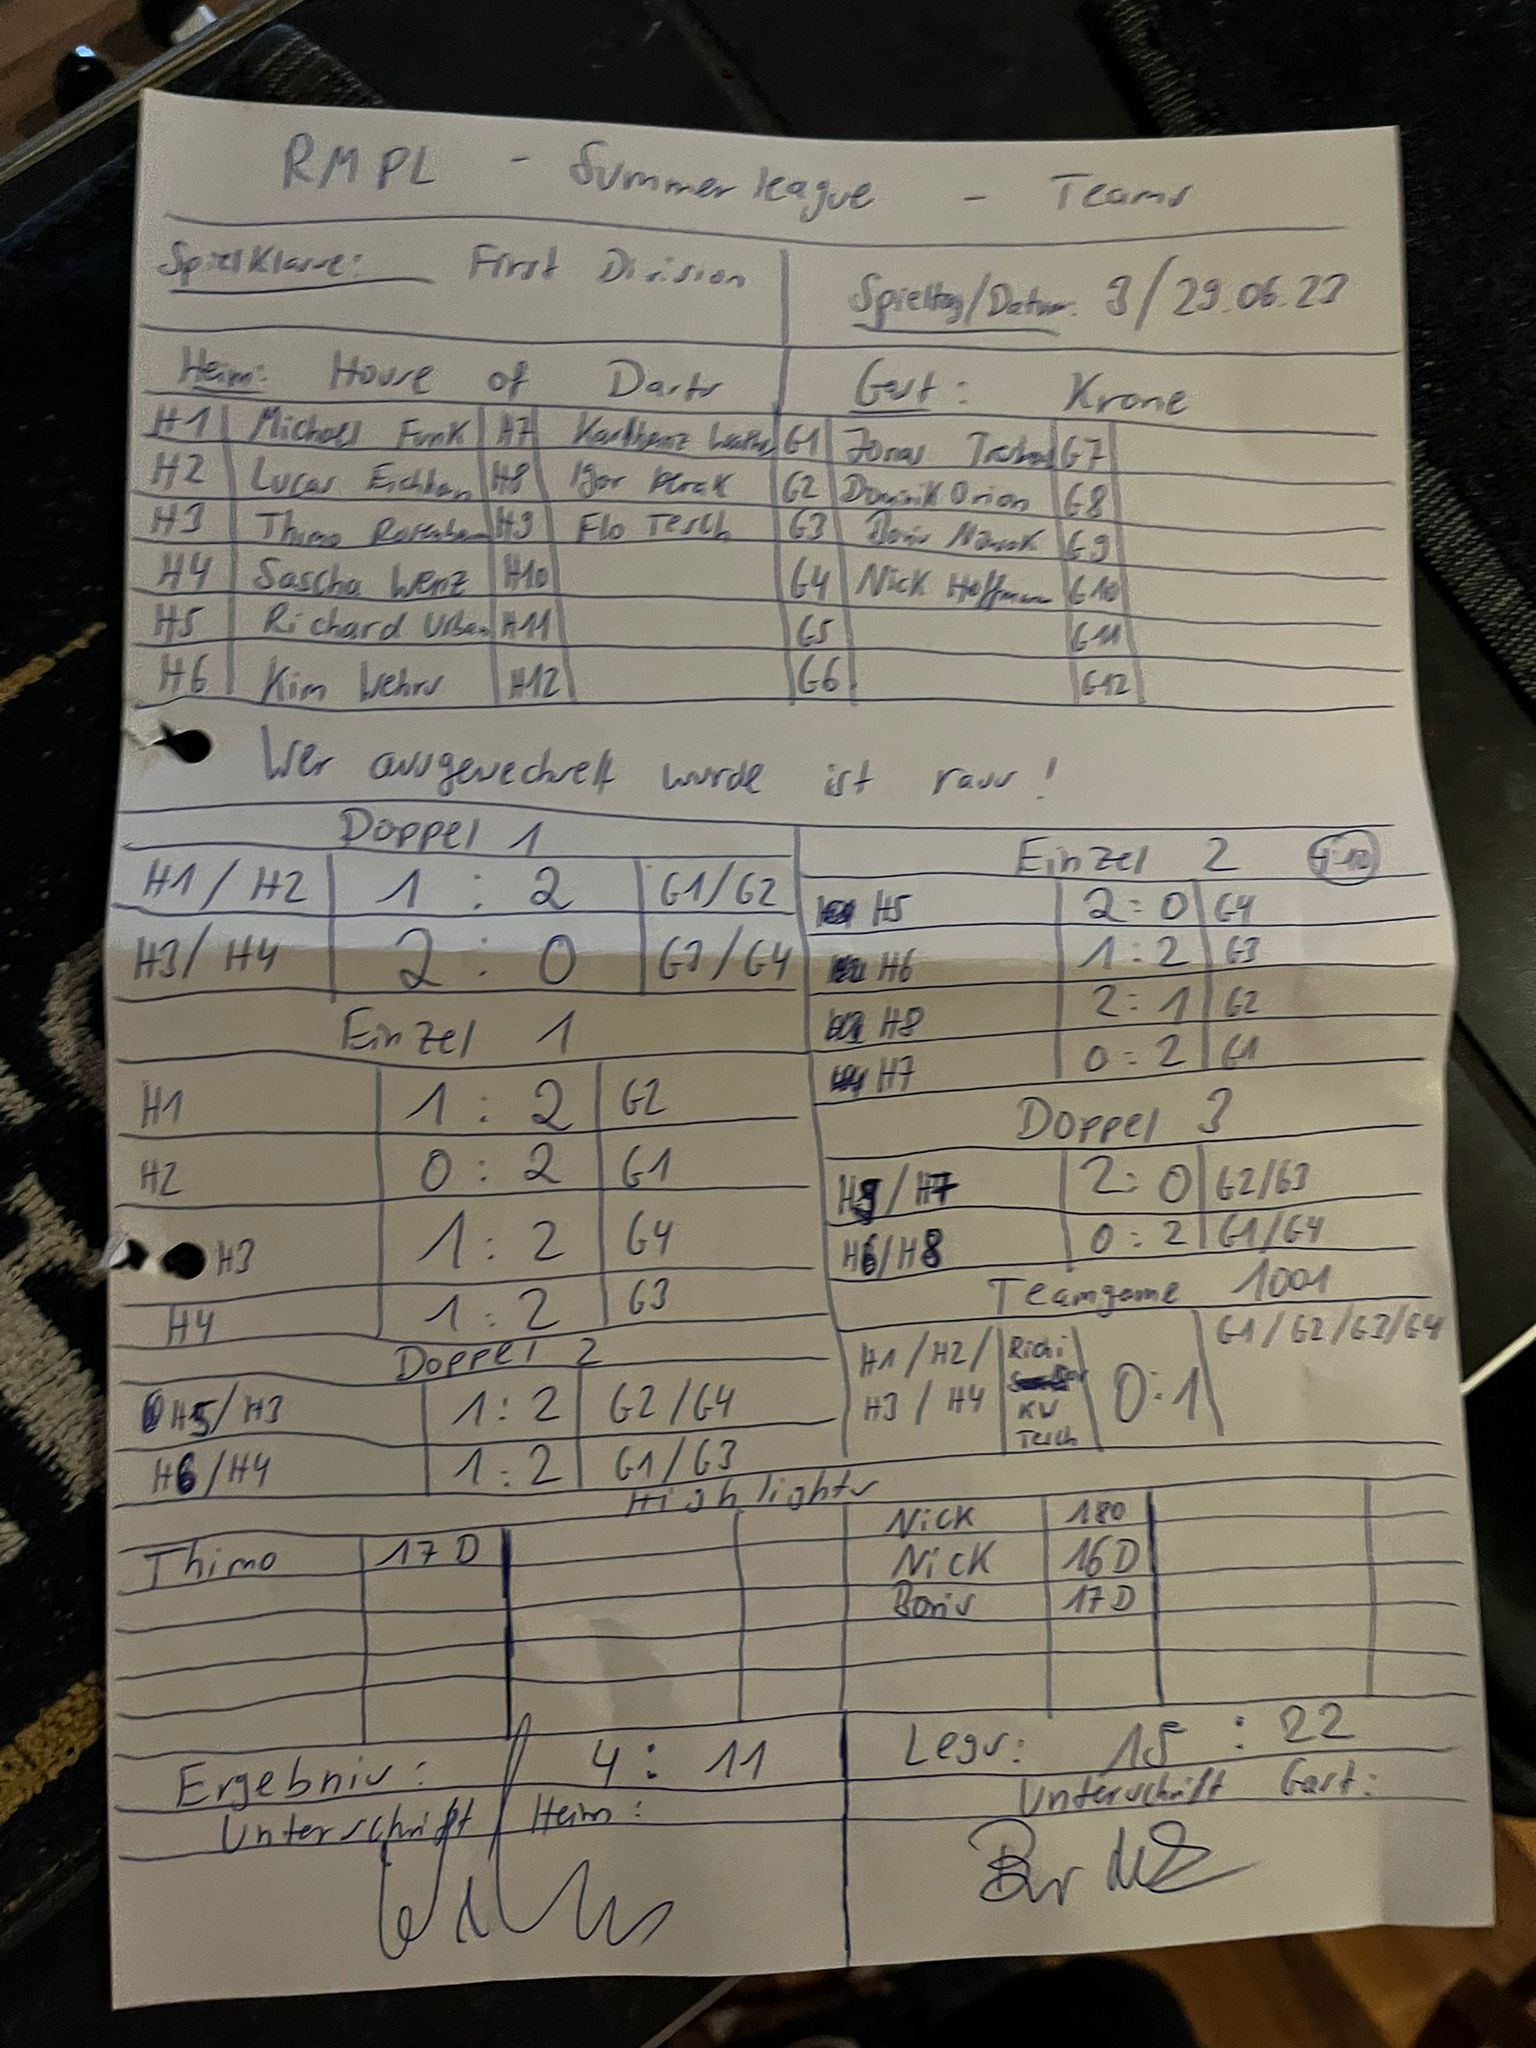 RMPL - Summerleague - Teams
Spielklasse: First Division
Spieltag/Datum: 9/29.06.23
Heim: House of Darts
Gast: Krone
H1 Michael Funk H7 Karlheinz G1 Jonas G7
H2 Lucas H8 Igor G2 Dominik Orion G8
H3 Thimo H9 Flo Tesch G3 Boris G9
H4 Sascha Wenz H10 G4 Nick Hoffmann G10
H5 Richard Urban H11 G5 G11
H6 Kim Wehrs H12 G6 G12
Wer ausgewechselt wurde ist raus!
Doppel 1
H1/H2 1:2 G1/G2
H3/H4 2:0 G3/G4
Einzel 1
H1 1:2 G2
H2 0:2 G1
H3 1:2 G4
H4 1:2 G3
Doppel 2
H5/H3 1:2 G2/G4
H6/H4 1:2 G1/G3
Einzel 2
H5 2:0 G4
H6 1:2 G3
H8 2:1 G2
H7 0:2 G1
Doppel 3
H7 2:0 G2/G3
H6/H8 0:2 G1/G4
Teamgame 1001
H1/H2/ Richi 0:1 G1/G2/G3/G4
H3/H4 KW
Tesch
Highlights
Thimo 17D
Nick 180
Nick 16D
Boris 17D
Ergebnis: 4:11
Legs: 15:22
Unterschrift Heim:
Unterschrift Gast: